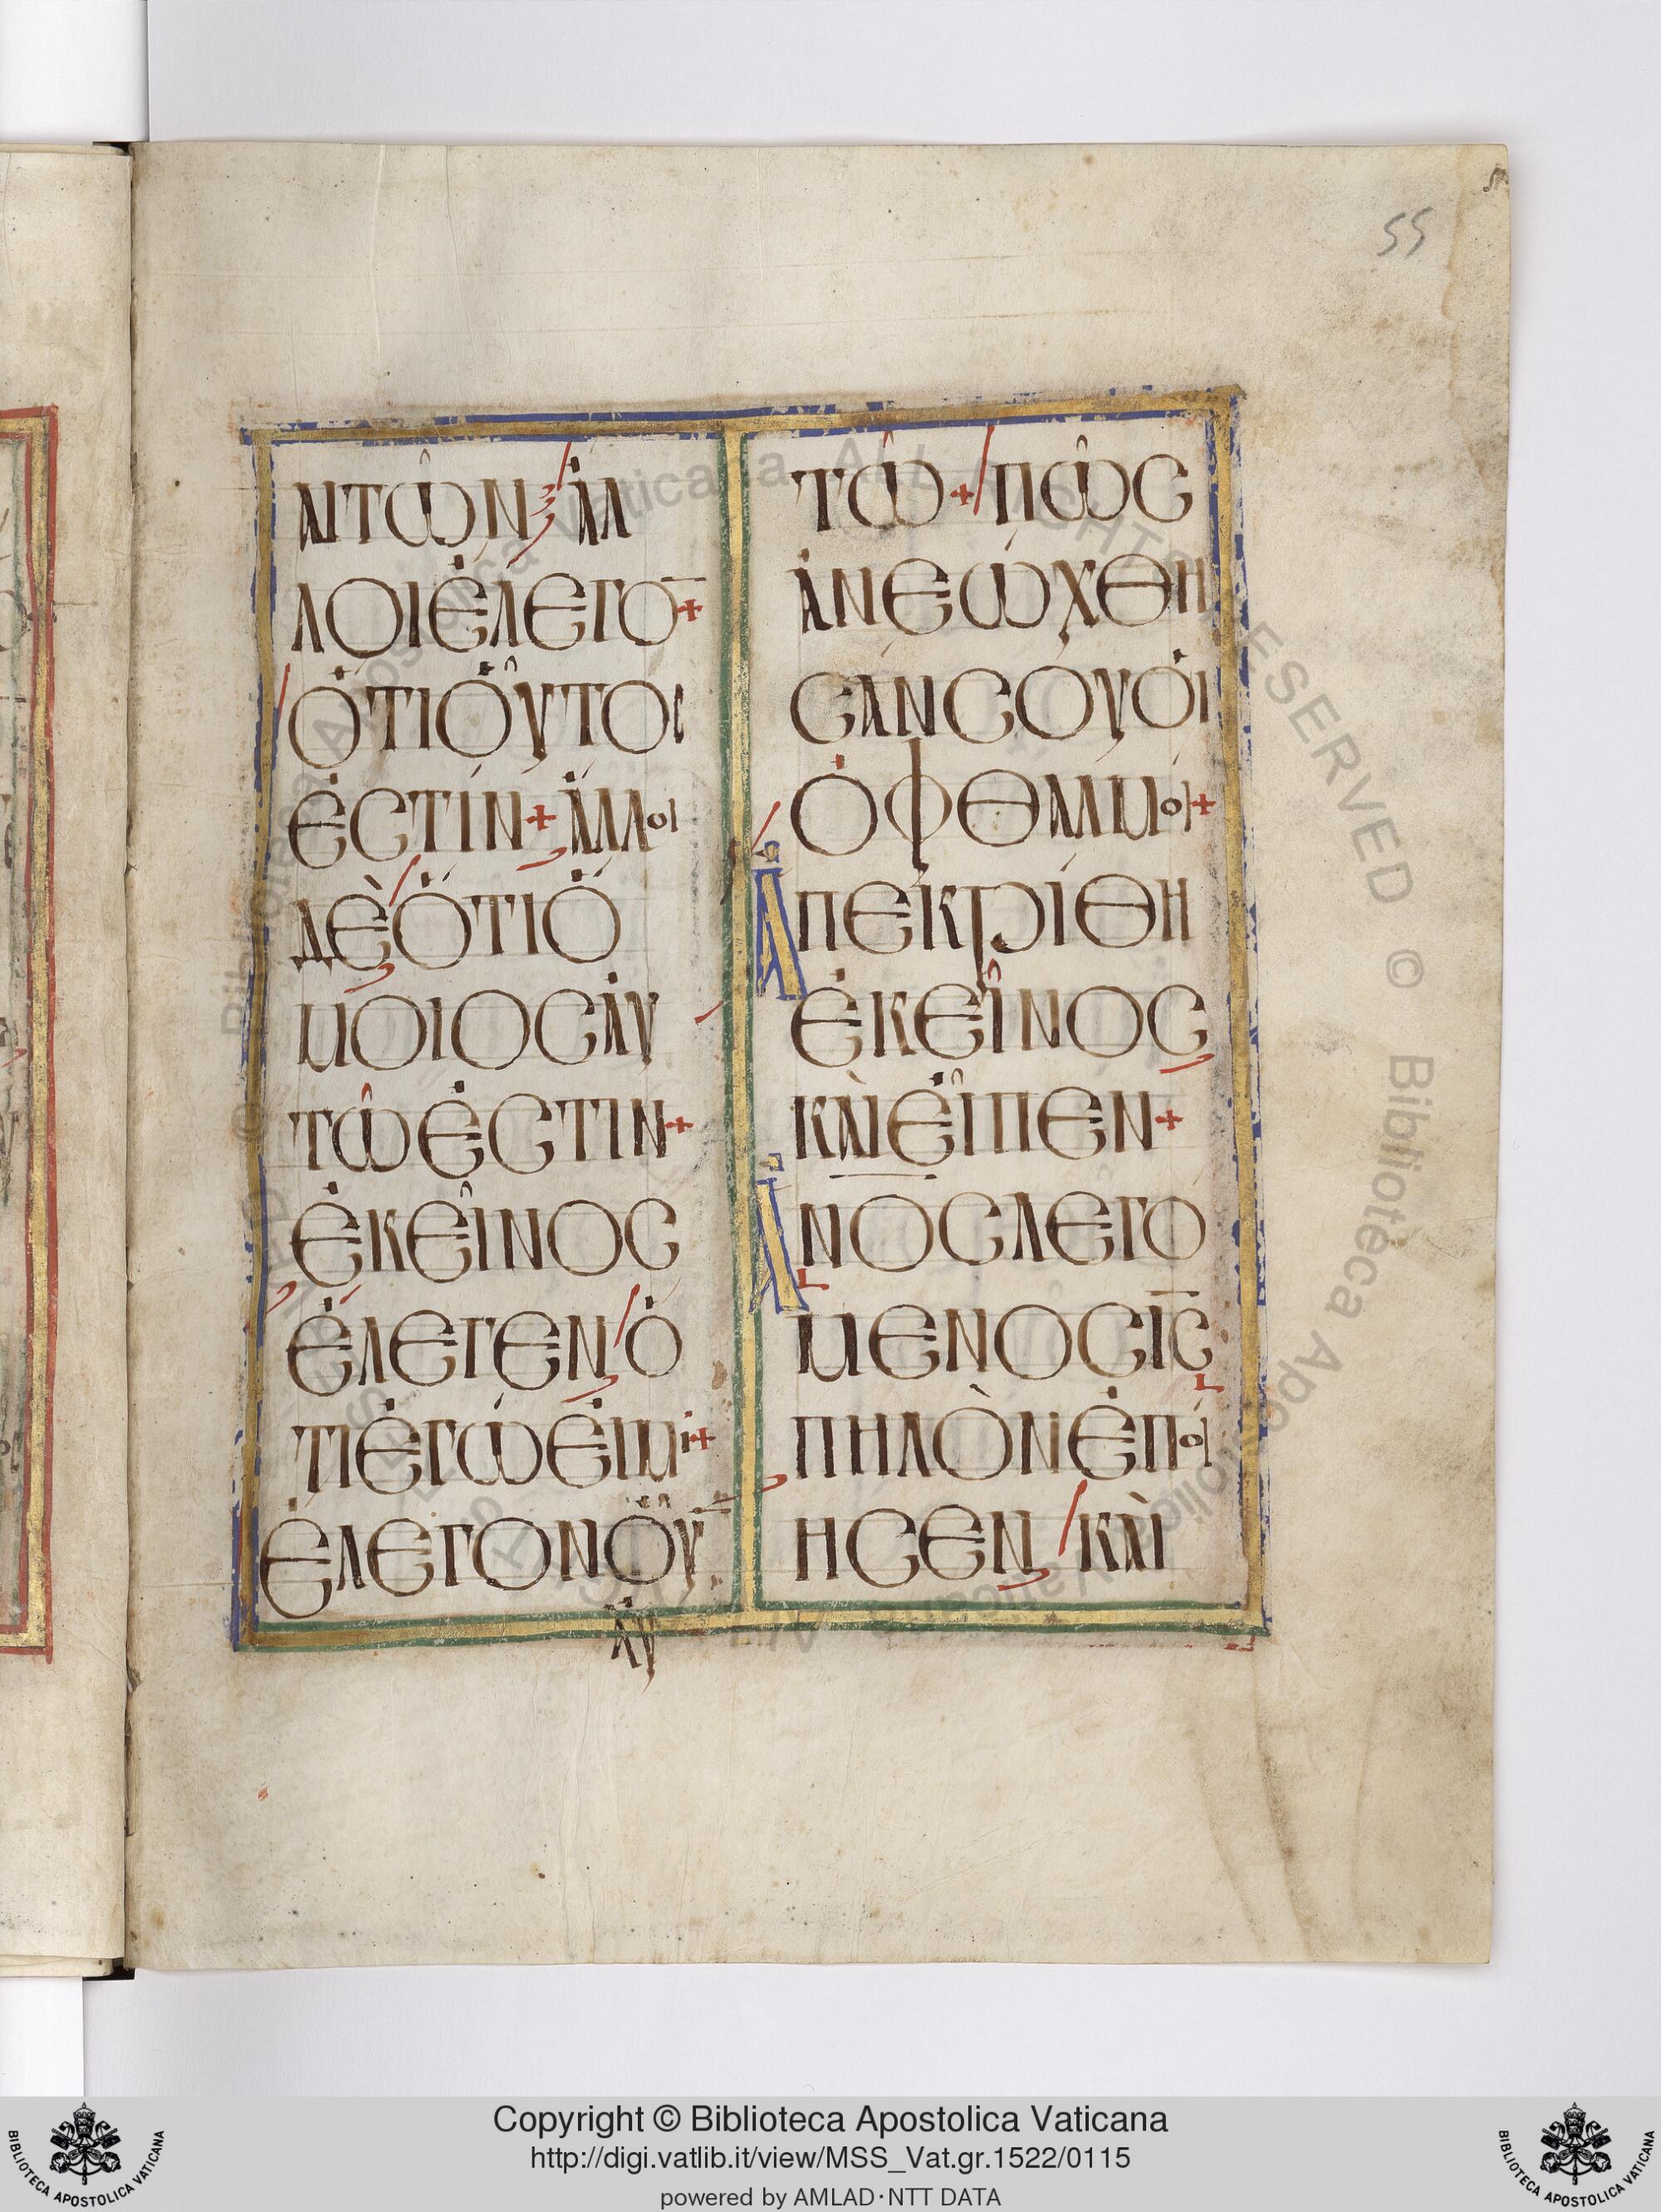 55
ΑΙΤῶΝ ἈΛ
ΛΟΙἜΛΕΓΟ̅+
ὍΤΙΟὟΤΟC
ἘCΤΊΝ+ἌΛΛΟΙ
ΔῈὍΤΙὍ
ΜΟΙΟCἈΥ
Τῶ̂ἘCΤΙΝ+
ἘΚΕῖΝΟC
ἜΛΕΓΕΝ Ὁ
ΤΙἘΓΏἘΙΜΙ+
ἜΛΕΓΟΝΟὖΝ
ἈΥ
Τῶ+ΠῶC
ἈΝΕΏΧΘΗ
CΑΝCΟΥΟἹ
ὈΦΘΑΛΜΟΙ+
ἈΠΕΚΡΊΘΗ
ἘΚΕῖΝΟC
ΚΑῚΕἾΠΕΝ+
ἈΝΟ̅CΛΕΓΟ
ΜΕΝΟCΙ̅C̅
ΠΗΛῸΝἘΠΟΊ
ΗCΕΝ ΚΑῚ
Copyright © Biblioteca Apostolica Vaticana
http://digi.vatlib.it/view/MSS_Vat.gr.1522/0115
powered by AMLAD·NTT DATA
BIBLIOTECA APOSTOLICA VATICANA
BIBLIOTECA APOSTOLICA VATICANA